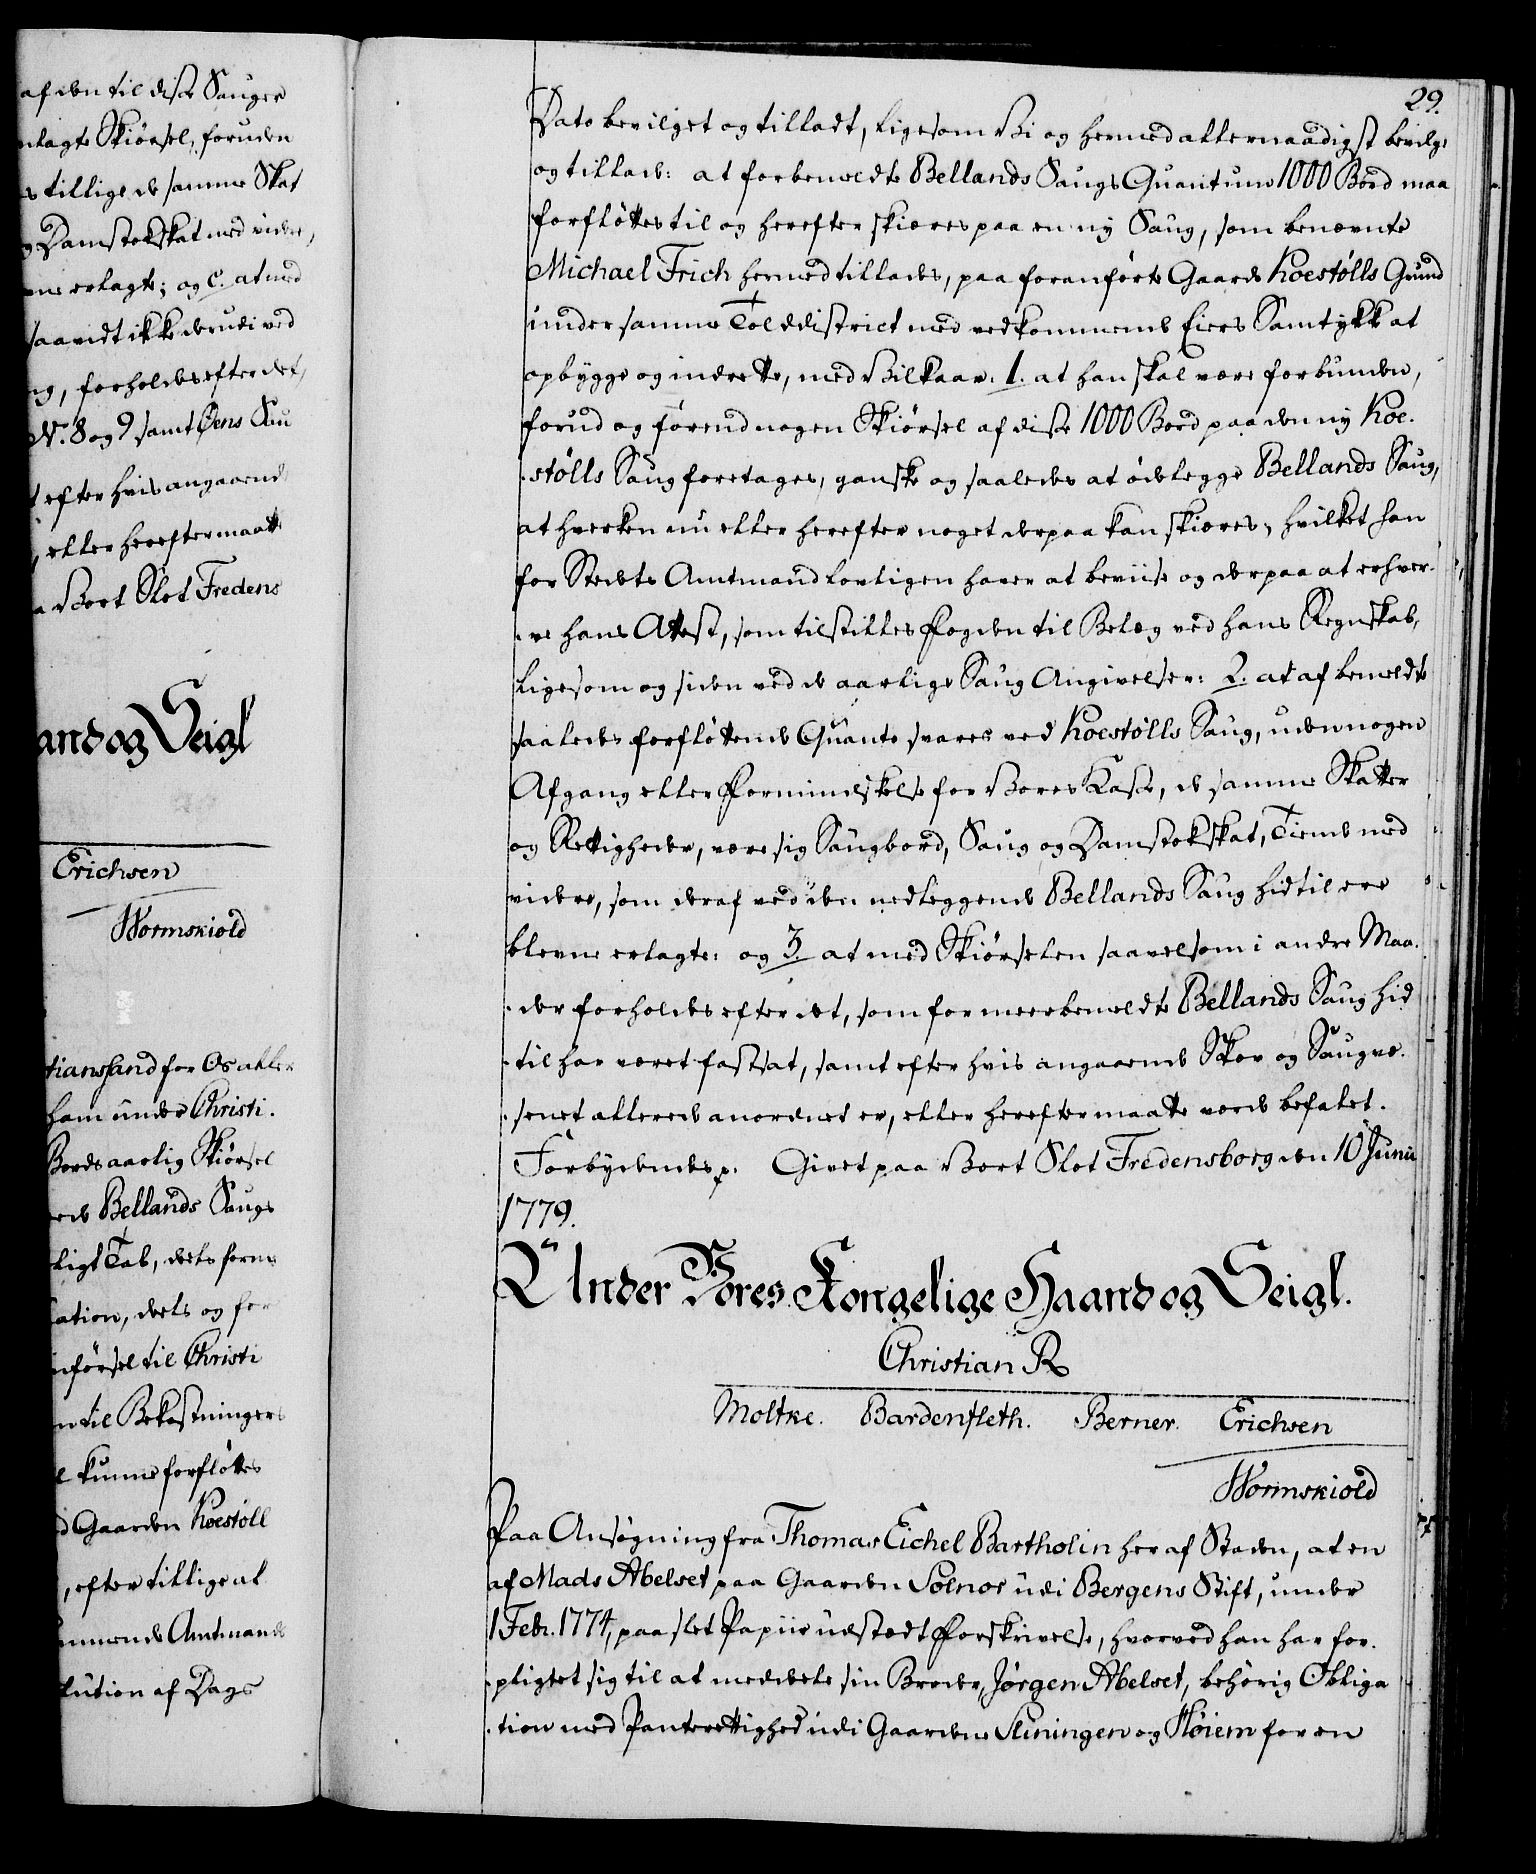 af den til disse Sauger
nlagte Skiørsel, foruden
s tillige de samme Skat
g Damstokskat med videre,
ene erlagte; og C. at med
saavidt ikke derudi ved
ng, forholdes efter det,
No. 8 og 9 samt Øens Sau
t efter hvis angaaende
, eller herefter maatte
a Vort Slot Fredens
and og Seigl
Erichsen
Wormskiold
tiansand for Os aller
ham under Christi.
Bords aarlig Skiørsel
ved Bellands Saugs
ligt Tab, deels forme
cation, deels og for
nførsel til Christi
n til Bekostninger
l kunne forfløttes
d Gaarden Koestøll
, efter tillige at
mmende Amtmands
lution af Dags
29.
Dato bevilget og tilladt, ligesom Vi og hermed allernaadigst bevilge
og tillade: at forbemeldte Bellands Saugs Quantum 1000 Bord maa
forfløttes til og herefter skiæres paa en ny Saug, som benævnte
Michael Frich hermed tillades, paa foranførte Gaards Koestølls Grund
under samme Tolddistrict med vedkommende Eiers Samtykke at
opbygge og indrette, med Vilkaar: 1. at han skal være forbunden,
forud og førend nogen Skiørsel af disse 1000 Bord paa den ny Koe-
-stølls Saug foretages, ganske og saaledes at ødelegge Bellands Saug,
at hverken nu eller herefter noget derpaa kan skiæres, hvilket han
for Stedets Amtmand lovligen haver at beviise og derpaa at erhver-
-ve hans Attest, som tilstilles Fogden til Belæg ved hans Regnskab,
ligesom og siden ved de aarlige Saug Angivelser: 2. at af bemeldte
saaledes forfløttende Quanto svares ved Koestølls Saug, uden nogen
Afgang eller Formindskelse for Vores Kasse, de samme Skatter
og Rettigheder, være sig Saugbord, Saug og Damstokskat, Tiende med
videre, som deraf ved den nedleggende Bellands Saug hidtil ere
blevne erlagte: og 3. at med Skiørselen saavelsom i andre Maa-
-der forholdes efter det, som for meerbemeldte Bellands Saug hid
-til har været fastsat, samt efter hvis angaaende Skov og Saugvæ-
-senet allerede anordnet er, eller herefter maatte vorde befalet.
Forbydendes p. Givet paa Vort Slot Fredensborg den 10 Junii
1779.
Under Vores Kongelige Haand og Seigl.
Christian R
Moltke. Bardenfleth. Berner. Erichsen
Wormskiold
Paa Ansøgning fra Thomas Eichel Bartholin her af Staden, at en
af Mads Abelset paa Gaarden Solnør udi Bergens Stift, under
1 Febr. 1774, paa slet Papiir udstædt Forskrivelse, hvorved han har for-
-pligtet sig til at meddele sin Broder, Jørgen Abelset, behørig Obliga
-tion med Panterettighed udi Gaardene Slüningen og Høiem for en